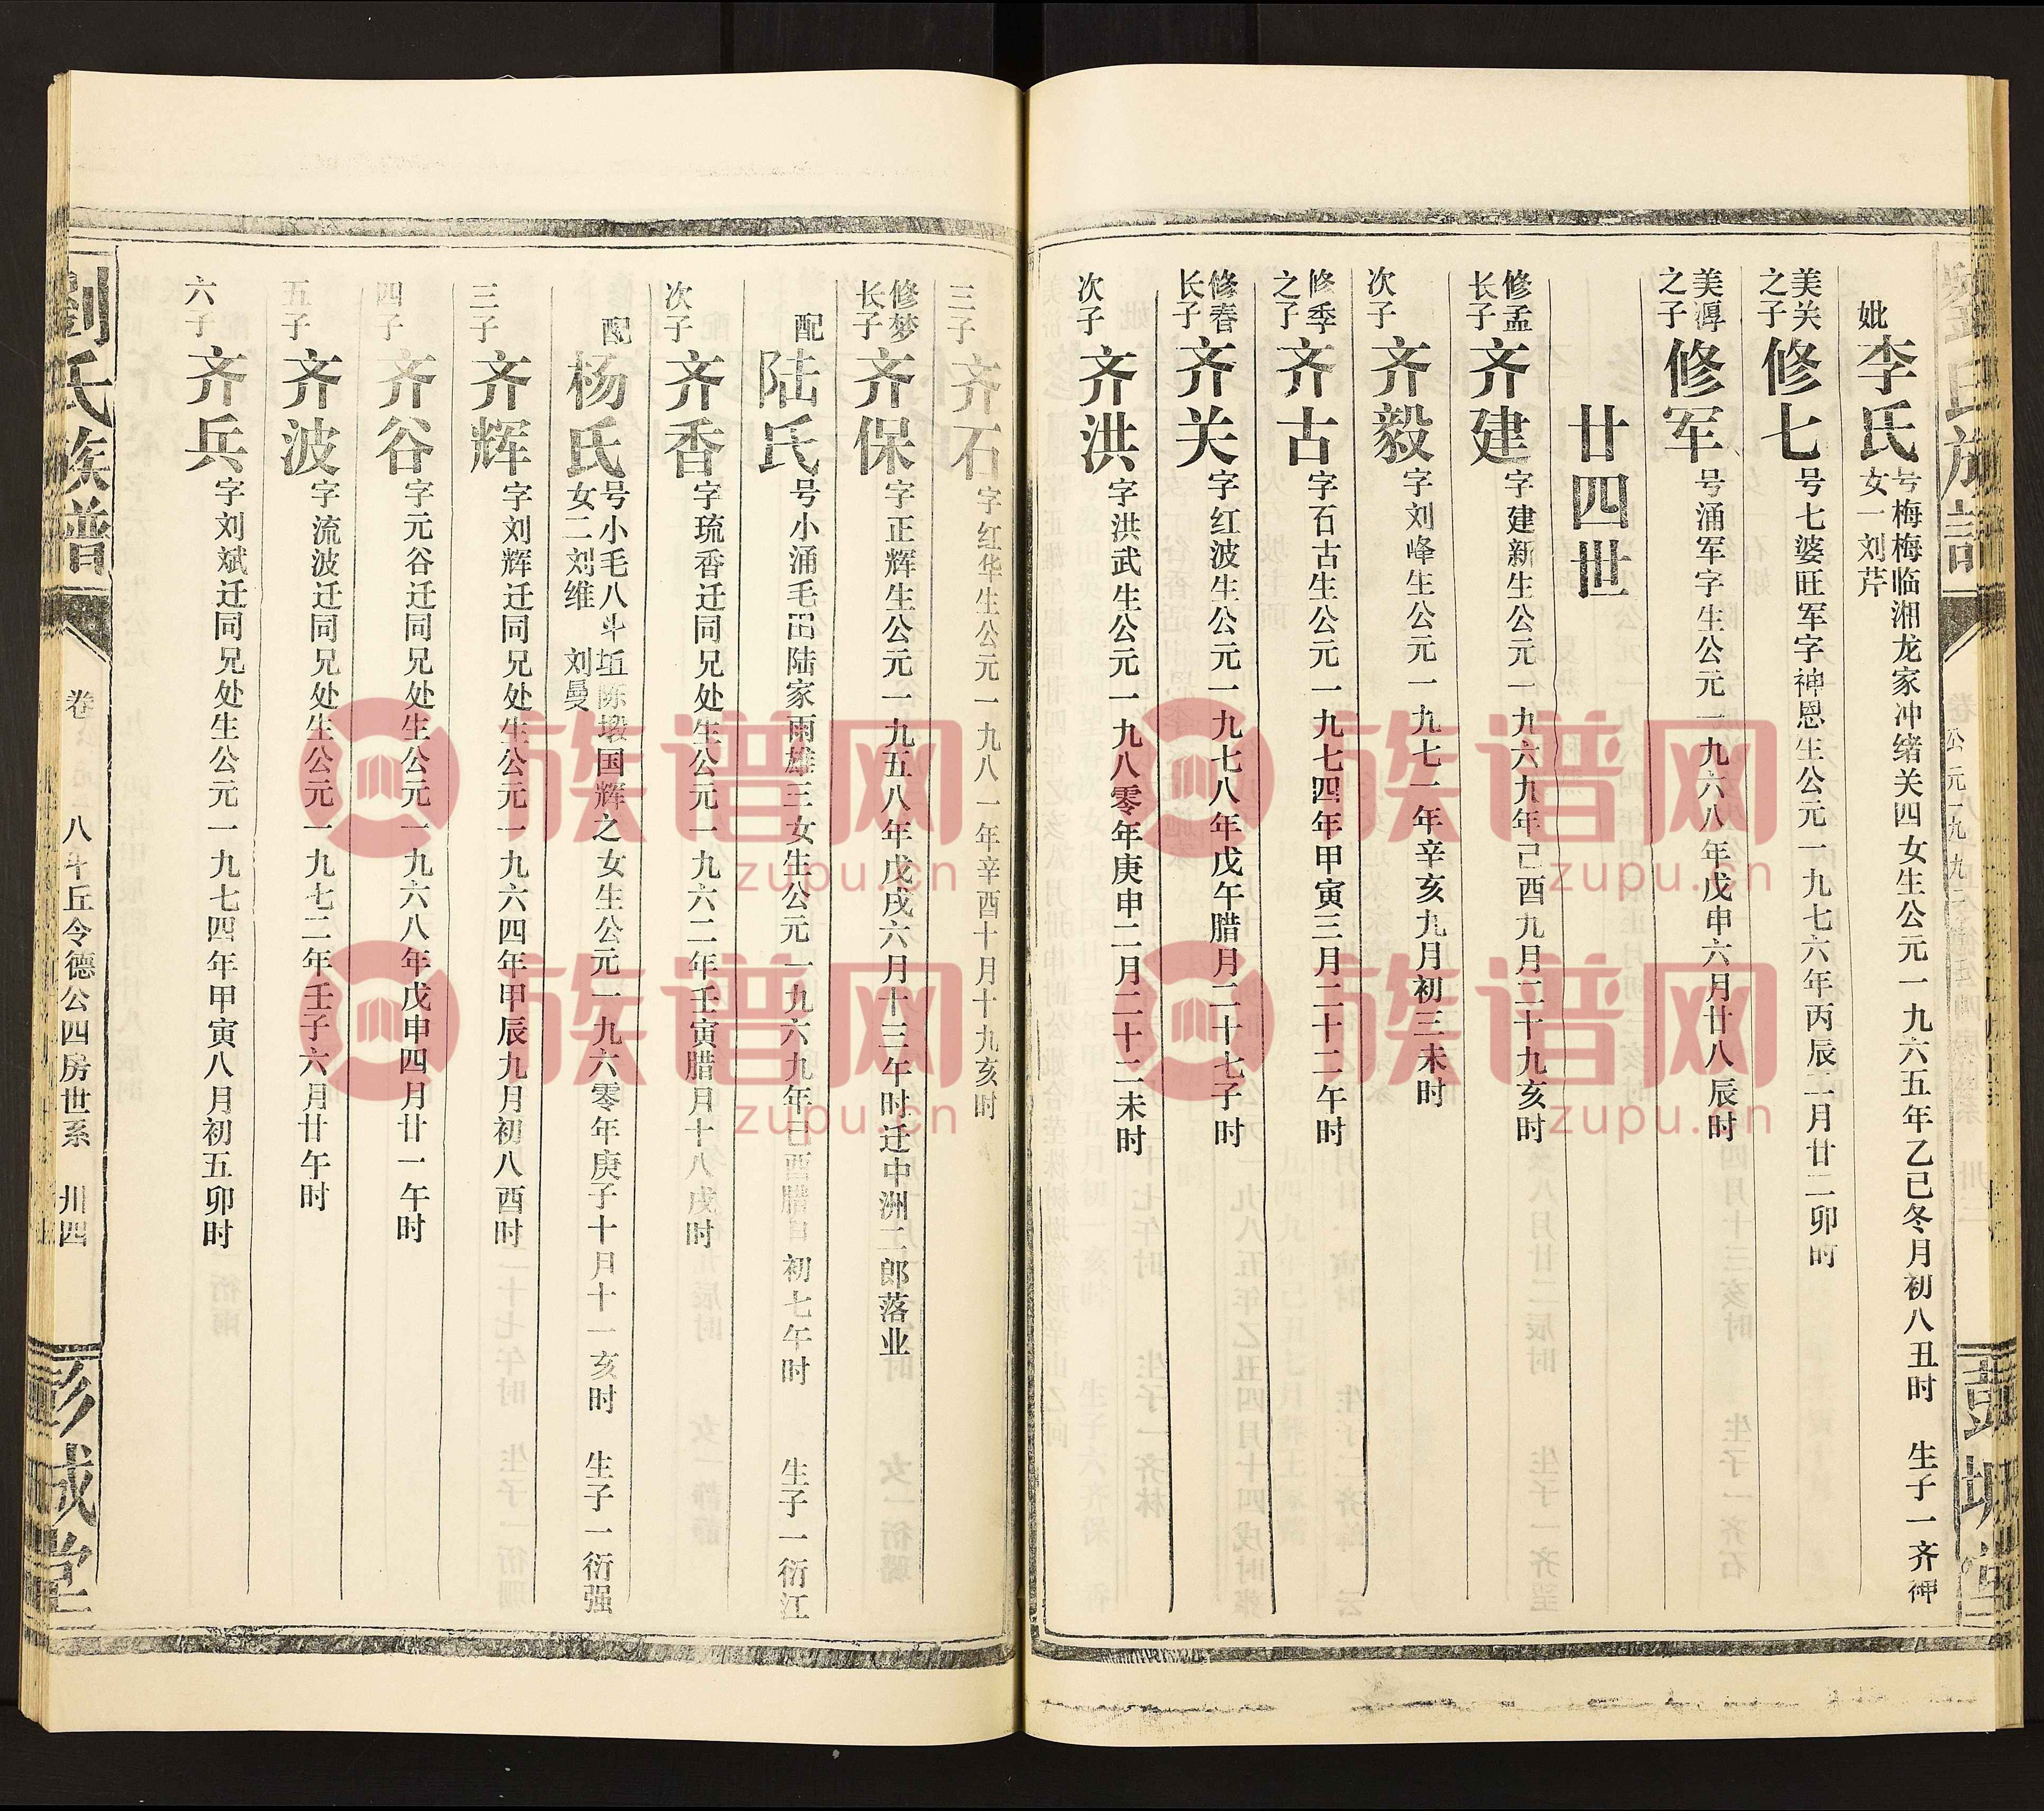 妣 李氏 号梅梅临湘龙家冲绪关四女生公元一九六五年乙巳冬月初八丑时 生子一齐神
女一刘芹
美关之子 修七 号七婆旺军字神恩生公元一九七六年丙辰二月廿二卯时
美淳之子 修军 号涌军字生公元一九六八年戊申六月廿八辰时
廿四世
修孟长子 齐建 字建新生公元一九六九年己酉九月二十九亥时
次子 齐毅 字刘峰生公元一九七一年辛亥九月初三未时
修季之子 齐古 字石古生公元一九七四年甲寅三月二十二午时
修春长子 齐关 字红波生公元一九七八年戊午腊月二十七子时
次子 齐洪 字洪武生公元一九八零年庚申二月二十二未时
三子 齐石 字红华生公元一九八一年辛酉十月十九亥时
修梦长子 齐保 字正辉生公元一九五八年戊戌六月十三午时迁中洲二郎落业
配 陆氏 号小涌毛田陆家雨雄三女生公元一九六九年己酉腊月初七午时 生子一衍江
次子 齐香 字琉香迁同兄处生公元一九六二年壬寅腊月十八戌时
配 杨氏 号小毛八斗坵陈塅国辉之女生公元一九六零年庚子十月十一亥时 生子一衍强
女二刘维 刘曼
三子 齐辉 字刘辉迁同兄处生公元一九六四年甲辰九月初八酉时
四子 齐谷 字元谷迁同兄处生公元一九六八年戊申四月廿一午时
五子 齐波 字流波迁同兄处生公元一九七二年壬子六月廿午时
六子 齐兵 字刘斌迁同兄处生公元一九七四年甲寅八月初五卯时
劉氏族譜 卷 八斗丘令德公四房世系 卅四 彭城堂
族谱网
zupu.cn
族谱网
zupu.cn
族谱网
zupu.cn
族谱网
zupu.cn